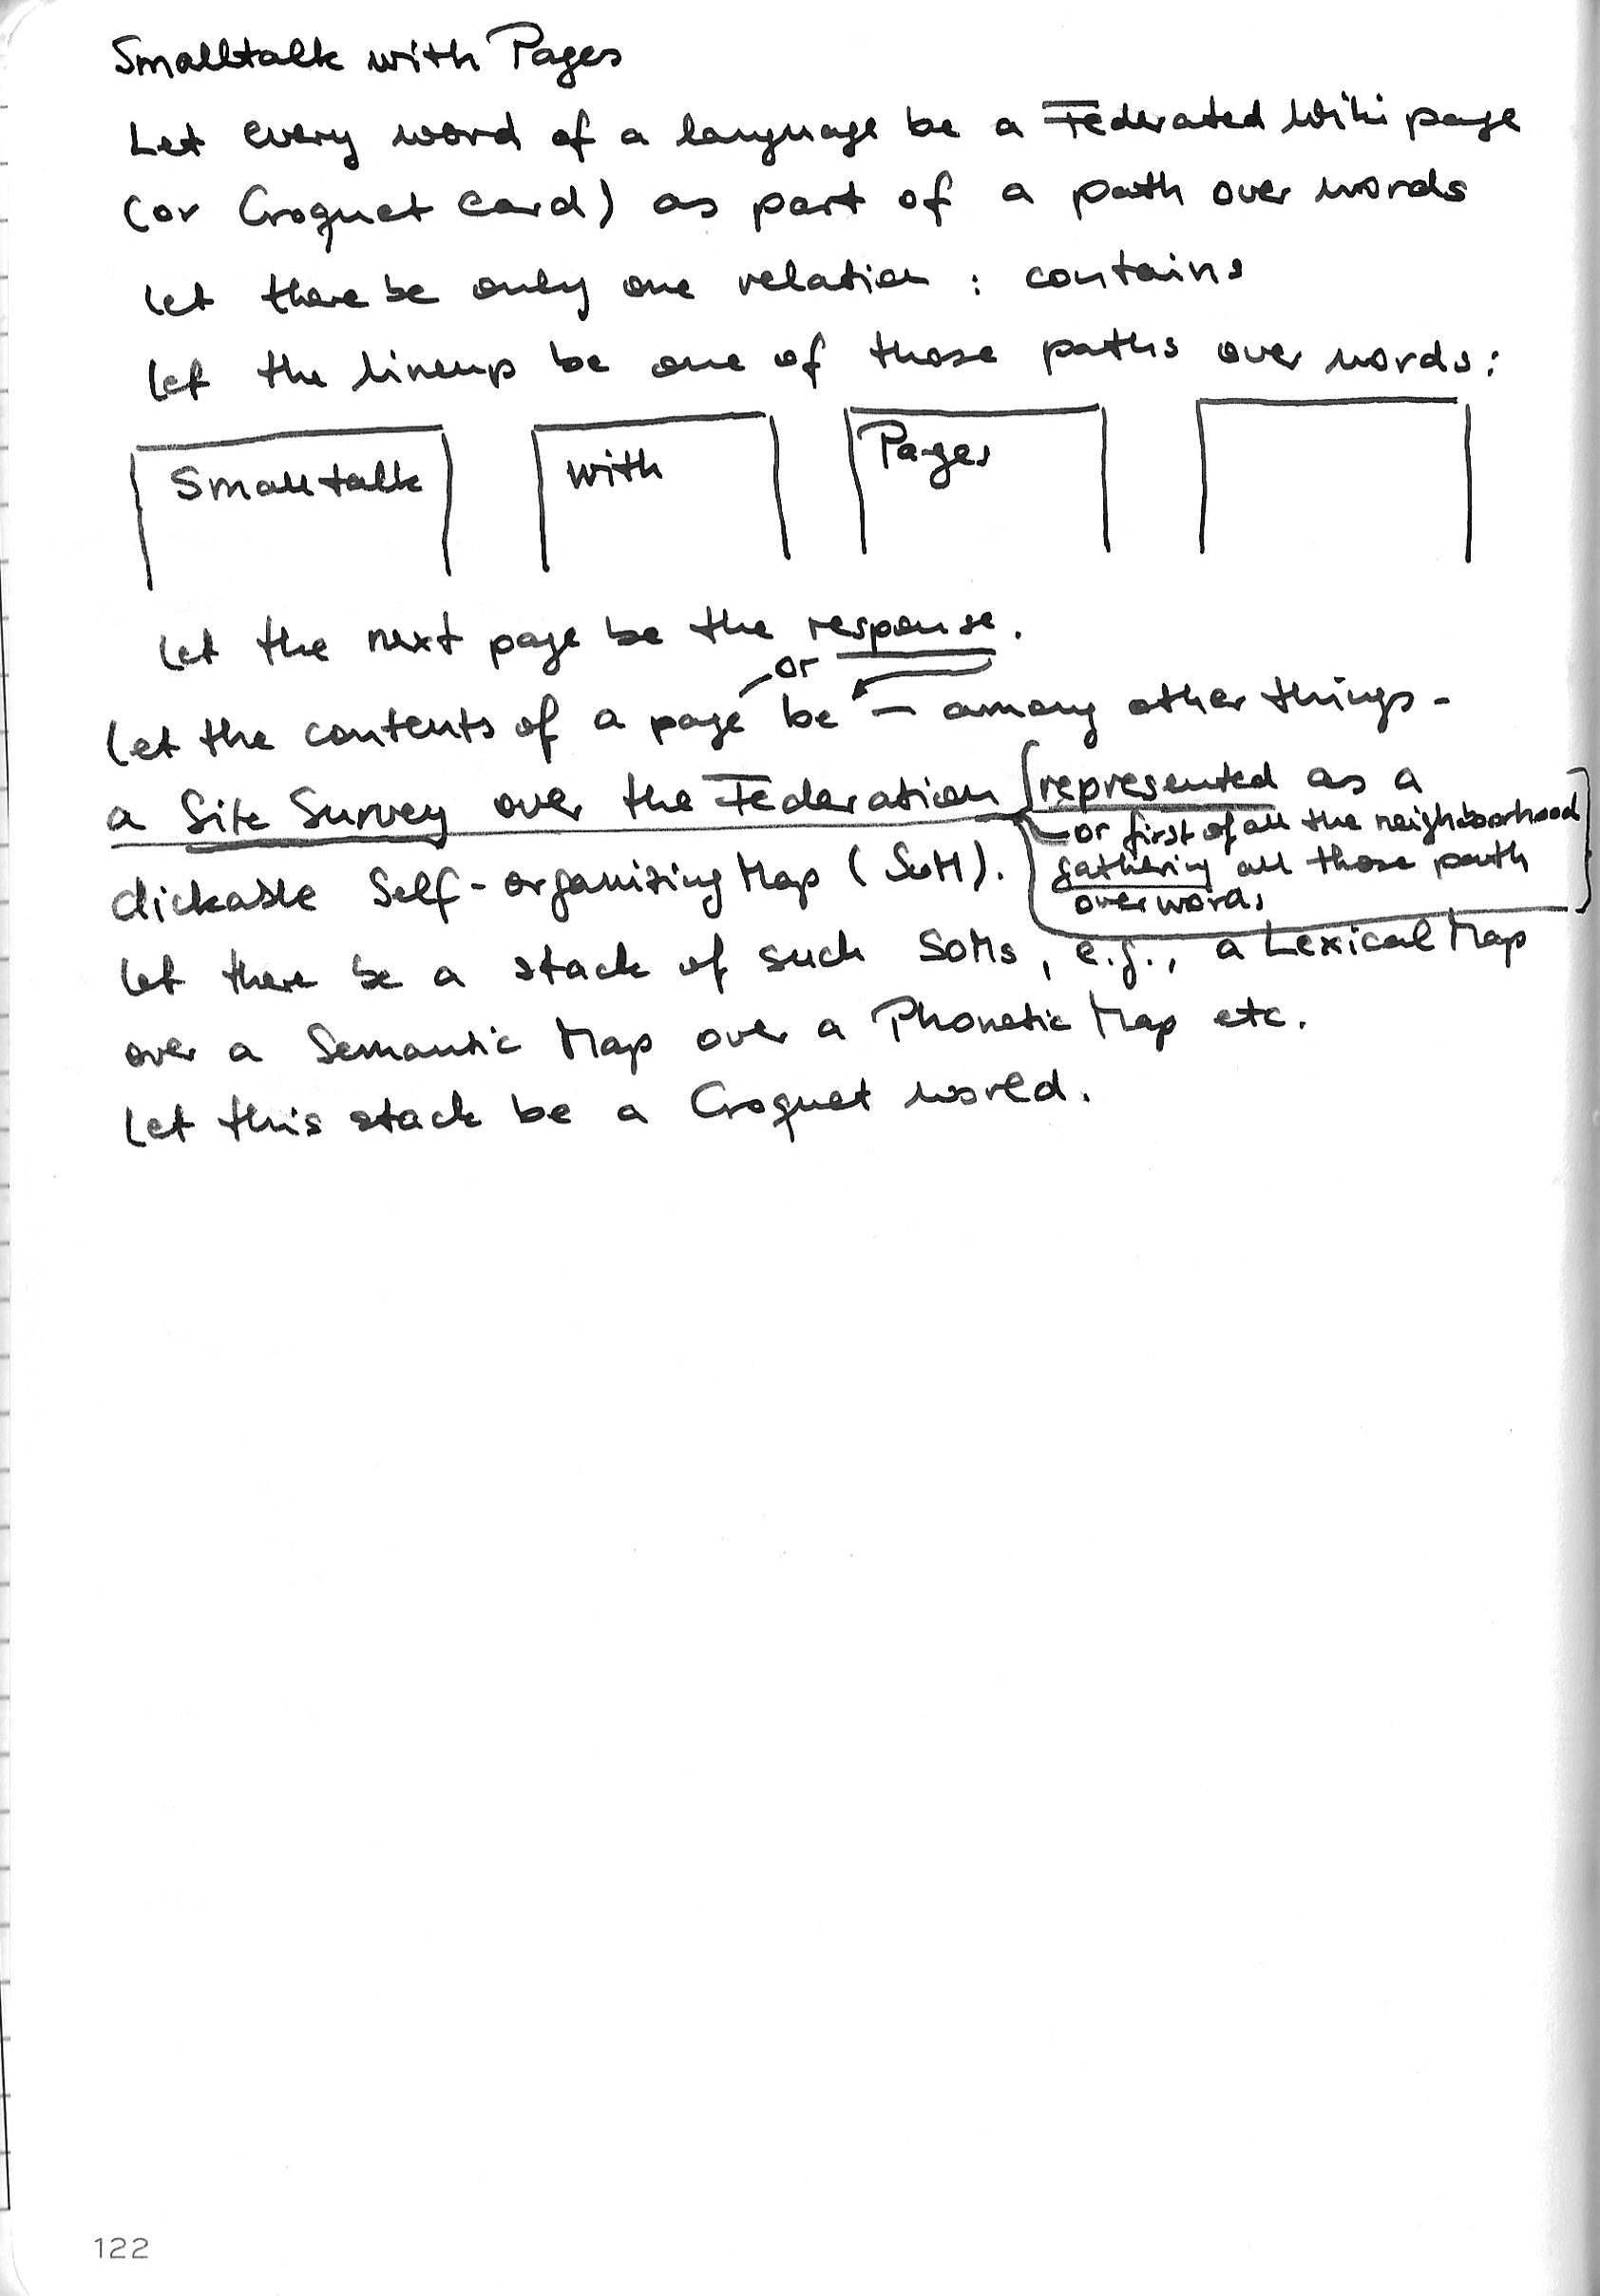 Smalltalk with Pages
Let every word of a language be a Federated Wiki page
(or Croquet card) as part of a path over words
Let there be only one relation : contains
Let the lineup be one of those paths over words :
Smalltalk with Pages
Let the next page be the response.
or
Let the contents of a page be – among other things –
a Site Survey over the Federation represented as a
or first of all the neighborhood
gathering all those path
over words
clickable Self-organizing Map (SOM).
Let there be a stack of such SOMs, e.g., a Lexical Map
over a Semantic Map over a Phonetic Map etc.
Let this stack be a Croquet world.
122